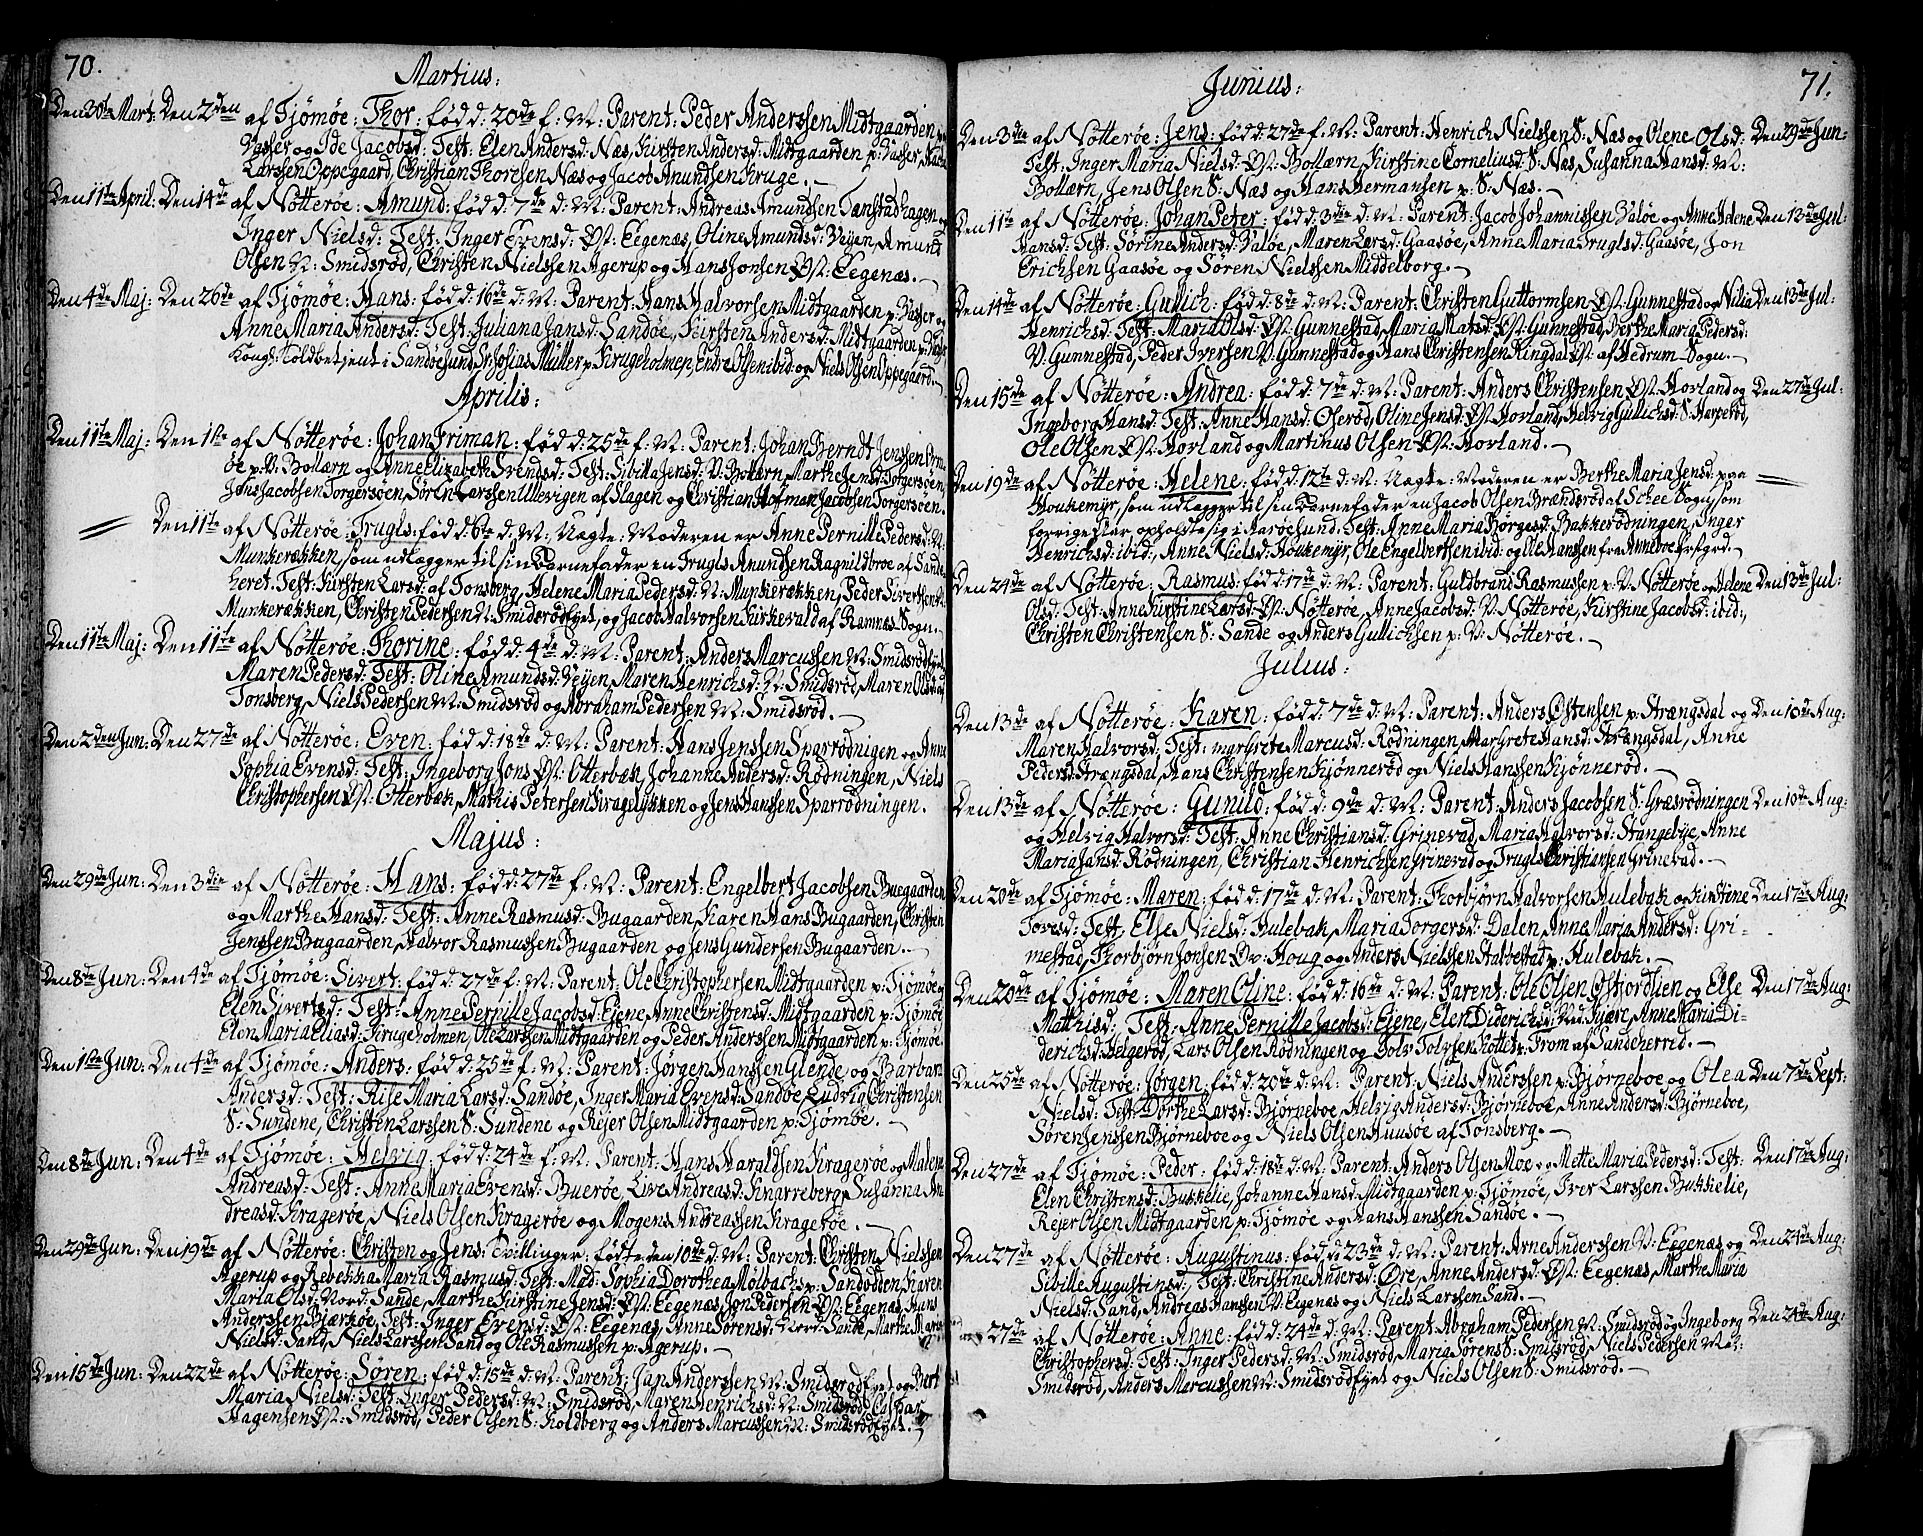 70.
Martius:
Den 30te Mart: Den 2den af Tjömöe: Thor: född: 20de f: M: Parent: Peder Anderssen Midtgaarden p:
Vasser og Ide Jacobsd: Test: Elen Andersd: Næs, Kirsten Andersd: Midtgaarden p: Vasser,
Larssen Oppegaard, Christian Thoresen Næs og Jacob Anundsen Kruge. –
Den 11te April: Den 14de af Nötteröe: Amund: född: 7de d: M: Parent: Andreas Amundsen Tanstadhagen og
Inger Nielsd: Test: Inger Evensd: Øst: Eegenæs, Oline Amundsd: Veyen, Amund
Olsen N: Smidsröd, Christen Nielssen Agerup og Hans Jonsen Øst: Eegenæs. –
Den 4de Maj: Den 26de af Tjömöe: Hans: född: 16de d: M: Parent: Hans Halvorsen Midtgaarden p: Vasser og
Anne Maria Andersd: Test: Juliana Jansd: Sandöe, Kirsten Andersd: Midtgaarden p: Vasser
Kongl: Toldbetjent i Sandösund Sr: Josias Müller p: Krugeholmen, Endre Olsen ibid: og Niels Olsen Oppegaard. –
Aprilis:
Den 11te Maj: Den 1ste af Nötteröe: Johan Friman: född: 25de f: M: Parent: Johan Berndt Jenssen
öe p: V: Bollærn og Anne Elizabeth Svendsd: Test: Sibilla Jensd: V: Bollærn, Marthe Jensd: Torgersöen,
Jöns Jacobsen Torgersöen, Sören Larssen Ullevigen af Slagen og Christian Hofman Jacobsen Torgersöen.
= Den 11te af Nötteröe: Trugls: född: 6te d: M: Uægte: Moderen er Anne Pernille Pedersd: N:
Munkerækken, som udlægger til sin Barnefader en Trugls Anundsen Ragnildbroe af Sande-
heret: Test: Kirsten Larsd: af Tonsberg, Helene Maria Pedersd: N: Munkerækken, Peder Sivertsen N:
Munkerækken, Christen Pedersen N: Smidsröd Eyet, og Jacob Halvorsen Kirkevald af Ramnes Sogn. –
Den 11te Maj: Den 11te af Nötteröe: Thorine: född: 4de d: M: Parent: Anders Marcussen M: Smidsröd Eyet
Maren Pedersd: Test: Oline Amundsd: Veyen, Maren Henrichsd: N: Smidsröd, Maren Olsd: af
Tonsberg, Niels Pedersen M: Smidsröd og Abraham Pedersen M: Smidsröd. –
Den 2den Jun: Den 27de af Nötteröe: Even: född: 18de d: M: Parent: Hans Jenssen Sparrödnigen og Anne
Sophia Evensd: Test: Ingeborg Jons Øst: Otterbæk, Johanne Andersd: Rödningen, Niels
Christophersen Øst: Otterbæk, Mathis Petersen Kragelykken og Jens Hanssen Sparrödningen.
Majus:
Den 29de Jun: Den 3die af Nötteröe: Hans: född: 27de f: M: Parent: Engelbert Jacobsen Buegaarden
og Marthe Hansd: Test: Anne Rasmusd: Bugaarden, Karen Hans Bugaarden, Christen
Jenssen Bugaarden, Halvor Rasmussen Bugaarden og Jens Gundersen Bugaarden. –
Den 8de Jun: Den 4de af Tjömöe: Sivert: född: 27de f: M: Parent: Ole Christophersen Midtgaarden p: Tjömöe og
Elen Sivertsd: Test: Anne Pernille Jacobsd: Ejene, Anne Christensd: Midtgaarden p: Tjömöe
Elen Maria Eliasd: Krugeholmen, Ole Larssen Midtgaarden og Peder Anderssen Midtgaarden p: Tjömöe.
Den 1ste Jun: Den 4de af Tjömöe: Anders: född: 25de f: M: Parent: Jörgen Hanssen Glende og Barbara
Andersd: Test: Rise Maria Larsd: Sandöe, Inger Maria Evensd: Sandöe, Ludvig Christensen
S: Sundene, Christen Larssen S: Sundene og Rejer Olsen Midtgaarden p: Tjömöe. –
Den 8de Jun: Den 4de af Tjömöe: Helvig: född: 24de f: M: Parent: Hans Haraldsen Krageröe og Malene
Andreasd: Test: Anne Maria Evensd: Bueröe, Live Andreasd: Knarreberg, Susanna An-
dreasd: Krageröe, Niels Olsen Krageröe og Mogens Andreassen Krageröe. –
Den 29de Jun: Den 19de af Nötteröe: Christen og Jens: Tvillinger: födte den 10de d: M: Parent: Christen Nielssen
Agerup og Rebekka Maria Rasmusd: Test: Mad: Sophia Dorothea Molbachs p: Sandodden, Karen
Maria Olsd: Nord: Sande, Marthe Kirstine Jensd: Øst: Eegenæs, Jon Pedersen Øst: Eegenæs, Hans
Anderssen Bjærköe, Test: Inger Evensd: Øst: Eegenæs, Anne Sörensd: Nord: Sande, Marthe Maria
Nielsd: Sand, Niels Larssen Sand og Ole Rasmussen p: Agerup. –
Den 15de Jun: Den 22de af Nötteröe: Sören: född: 15de d: M: Parent: Jan Anderssen M: Smidsröd Eyet og Berte
Maria Nielsd: Test: Inger Pedersd: M: Smidsröd, Maren Henrichsd: N: Smidsröd, Caspar
Hagensen Øst: Smidsröd, Peder Olsen S: Holdberg og Anders Marcussen M: Smidsröd Eyet. –
71.
Junius:
Den 3die af Nötteröe: Jens: född: 27de f: M: Parent: Henrich Nielssen S: Næs og Olene Olsd: Den 29de Jun:
Test: Inger Maria Nielsd: Øst: Bollærn, Kirstine Corneliusd: S: Næs, Susanna Hansd: M:
Bollærn, Jens Olsen S: Næs og Hans Hermansen p: S: Næs. –
Den 11te af Nötteröe: Johan Peter: född: 3die d: M: Parent: Jacob Johannissen Valöe og Anne Helene Den 13de Jul:
Hansd: Test: Sörine Andersd: Valöe, Maren Larsd: Gaasöe, Anne Maria Truglsd: Gaasöe, Jon
Erichsen Gaasöe og Sören Nielssen Middelborg. –
Den 14de af Nötteröe: Gullich: född: 8de d: M: Parent: Christen Guttormsen Øst: Gunnestad og Nilia Den 13de Jul:
Henrichsd: Test: Maria Olsd: Øst: Gunnestad, Maria Matsd: Øst: Gunnestad, Berthe Maria Pedersd:
V: Gunnestad, Peder Iversen V: Gunnestad og Hans Christensen Ringdal Øst: af Hedrum Sogn. –
Den 15de af Nötteröe: Andrea: född: 7de d: M: Parent: Anders Christensen Øst: Hovland og Den 27de Jul:
Ingeborg Hansd: Test: Anne Hansd: Oseröd, Oline Jensd: Øst: Hovland, Helvig Gullichsd: S: Harperöd,
Ole Olsen Øst: Hovland og Martinus Olsen Øst: Hovland. –
Den 19de af Nötteröe: Helene: född: 12te d: M: Uægte: Moderen er Berthe Maria Jensd: paa =
Houkemyr, som udlægger til sin Barnefader en Jacob Olsen Brændsröd af Schee Sogn, som
forrige Aar opholdte sig i Aaröesund. Test: Anne Maria Börgesd: Bakkerödningen, Inger
Henrichsd: ibid:, Anne Nielsd: Houkemyr, Ole Engelbertsen ibid: og Ole Hanssen fra Anneboe Præstgrd. –
Den 24de af Nötteröe: Rasmus: född: 17de d: M: Parent: Guldbrand Rasmussen p: V: Nötteröe og Helene Den 13de Jul:
Olsd: Test: Anne Kirstine Larsd: Øst: Nötteröe, Anne Jacobsd: V: Nötteröe, Kirstine Jacobsd: ibid:,
Christen Christensen S: Sande og Anders Gullichsen p: V: Nötteröe. –
Julius:
Den 13de af Nötteröe: Karen: född: 7de d: M: Parent: Anders Estensen p: Strængsdal og Den 10de Aug:
Maren Halvorsd: Test: Margrete Marcusd: Rödningen, Margrete Hansd: Strængsdal, Anne
Pedersd: Strængsdal, Hans Christensen Kjönneröd og Niels Hanssen Kjönneröd. –
Den 13de af Nötteröe: Gunild: född: 9de d: M: Parent: Anders Jacobsen S: Græsrödningen Den 10de Aug:
og Helvig Halvorsd: Test: Anne Christiansd: Grinevad, Maria Halvorsd: Stangebye, Anne
Maria Jansd: Rödningen, Christian Henrichsen Grineved og Trugls Christiansen Grinevad. –
Den 20de af Tjömöe: Maren: född: 17de d: M: Parent: Thorbjørn Halvorsen Hulebak og Kirstine Den 17de Aug:
Toresd: Test: Else Nielsd: Hulebak, Maria Torgersd: Dalen, Anne Maria Andersd: Gri-
mestad, Thorbjørn Jonsen Øv: Houg og Anders Nielssen Halbestad p: Hulebak. –
Den 20de af Tjömöe: Maren Oline: född: 16de d: M: Parent: Ole Olsen Østfjordlien og Else Den 17de Aug:
Matthisd: Test: Anne Pernille Jacobsd: Ejene, Elen Diderichsd: Kjære, Anne Maria Di-
derichsd: Helgeröd, Lars Olsen Rödningen og Solv Tolvsen Hottet p: From af Sandeherrid. –
Den 25de af Nötteröe: Jörgen: född: 20de d: M: Parent: Niels Anderssen p: Björneboe og Olea Den 7de Sept:
Nielsd: Test: Dorthe Larsd: Björneboe, Helvig Andersd: Björneboe, Anne Andersd: Björneboe,
Sören Jenssen Björneboe og Niels Olsen Huusöe af Tonsberg. –
Den 27de af Tjömöe: Peder: född: 18de d: M: Parent: Anders Olsen Moe og Mette Maria Pedersd: Test: Den 17de Aug:
Elen Christensd: Bukkelie, Johanne Hansd: Midtgaarden p: Tjömöe, Iver Larssen Bukkelie,
Rejer Olsen Midtgaarden p: Tjömöe og Hans Hanssen Sandöe. –
Den 27de af Nötteröe: Augustinus: född: 23de d: M: Parent: Arne Anderssen V: Eegenæs og Den 24de Aug:
Sibille Augustinsd: Test: Christine Andersd: Øre, Anne Andersd: Øst: Eegenæs, Marthe Maria
Nielsd: Sand, Andreas Hanssen V: Eegenæs og Niels Larssen Sand. –
27de af Nötteröe: Anne: född: 24de d: M: Parent: Abraham Pedersen M: Smidsröd og Ingeborg Den 24de Aug:
Christophersd: Test: Inger Pedersd: M: Smidsröd, Maria Sörens S: Smidsröd, Niels Pedersen M:
Smidsröd, Anders Marcussen M: Smidsröd Eyet og Niels Olsen S: Smidsröd. –